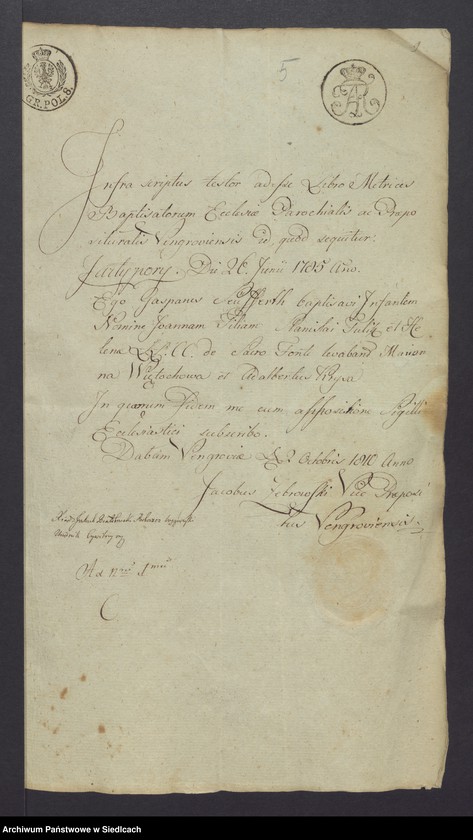 GR. POL. 8.
5
1
Infra scriptus testor adesse Libro Metrices
Baptisatorum Ecclesiæ Parochialis ac Præpo
situralis Vengroviensis id quod sequitur:
Jartypory. Die 26. Junii 1785 Ano.
Ego Gasparus baptisavi Infantem
Nomine Joannam Filiam Stanislai et He
lenæ LL. CC. de Sacro Fonte levabant Marian
na et Adalbertus
In quorum Fidem me cum appositione Sigilli
Ecclesiastici subscribo.
Datum Vengroviæ D. 2 Octobris 1810 Anno
Jacobus Zebrowski Vice Præposi
tus Vengroviensis.
Ad
Archiwum Państwowe w Siedlcach